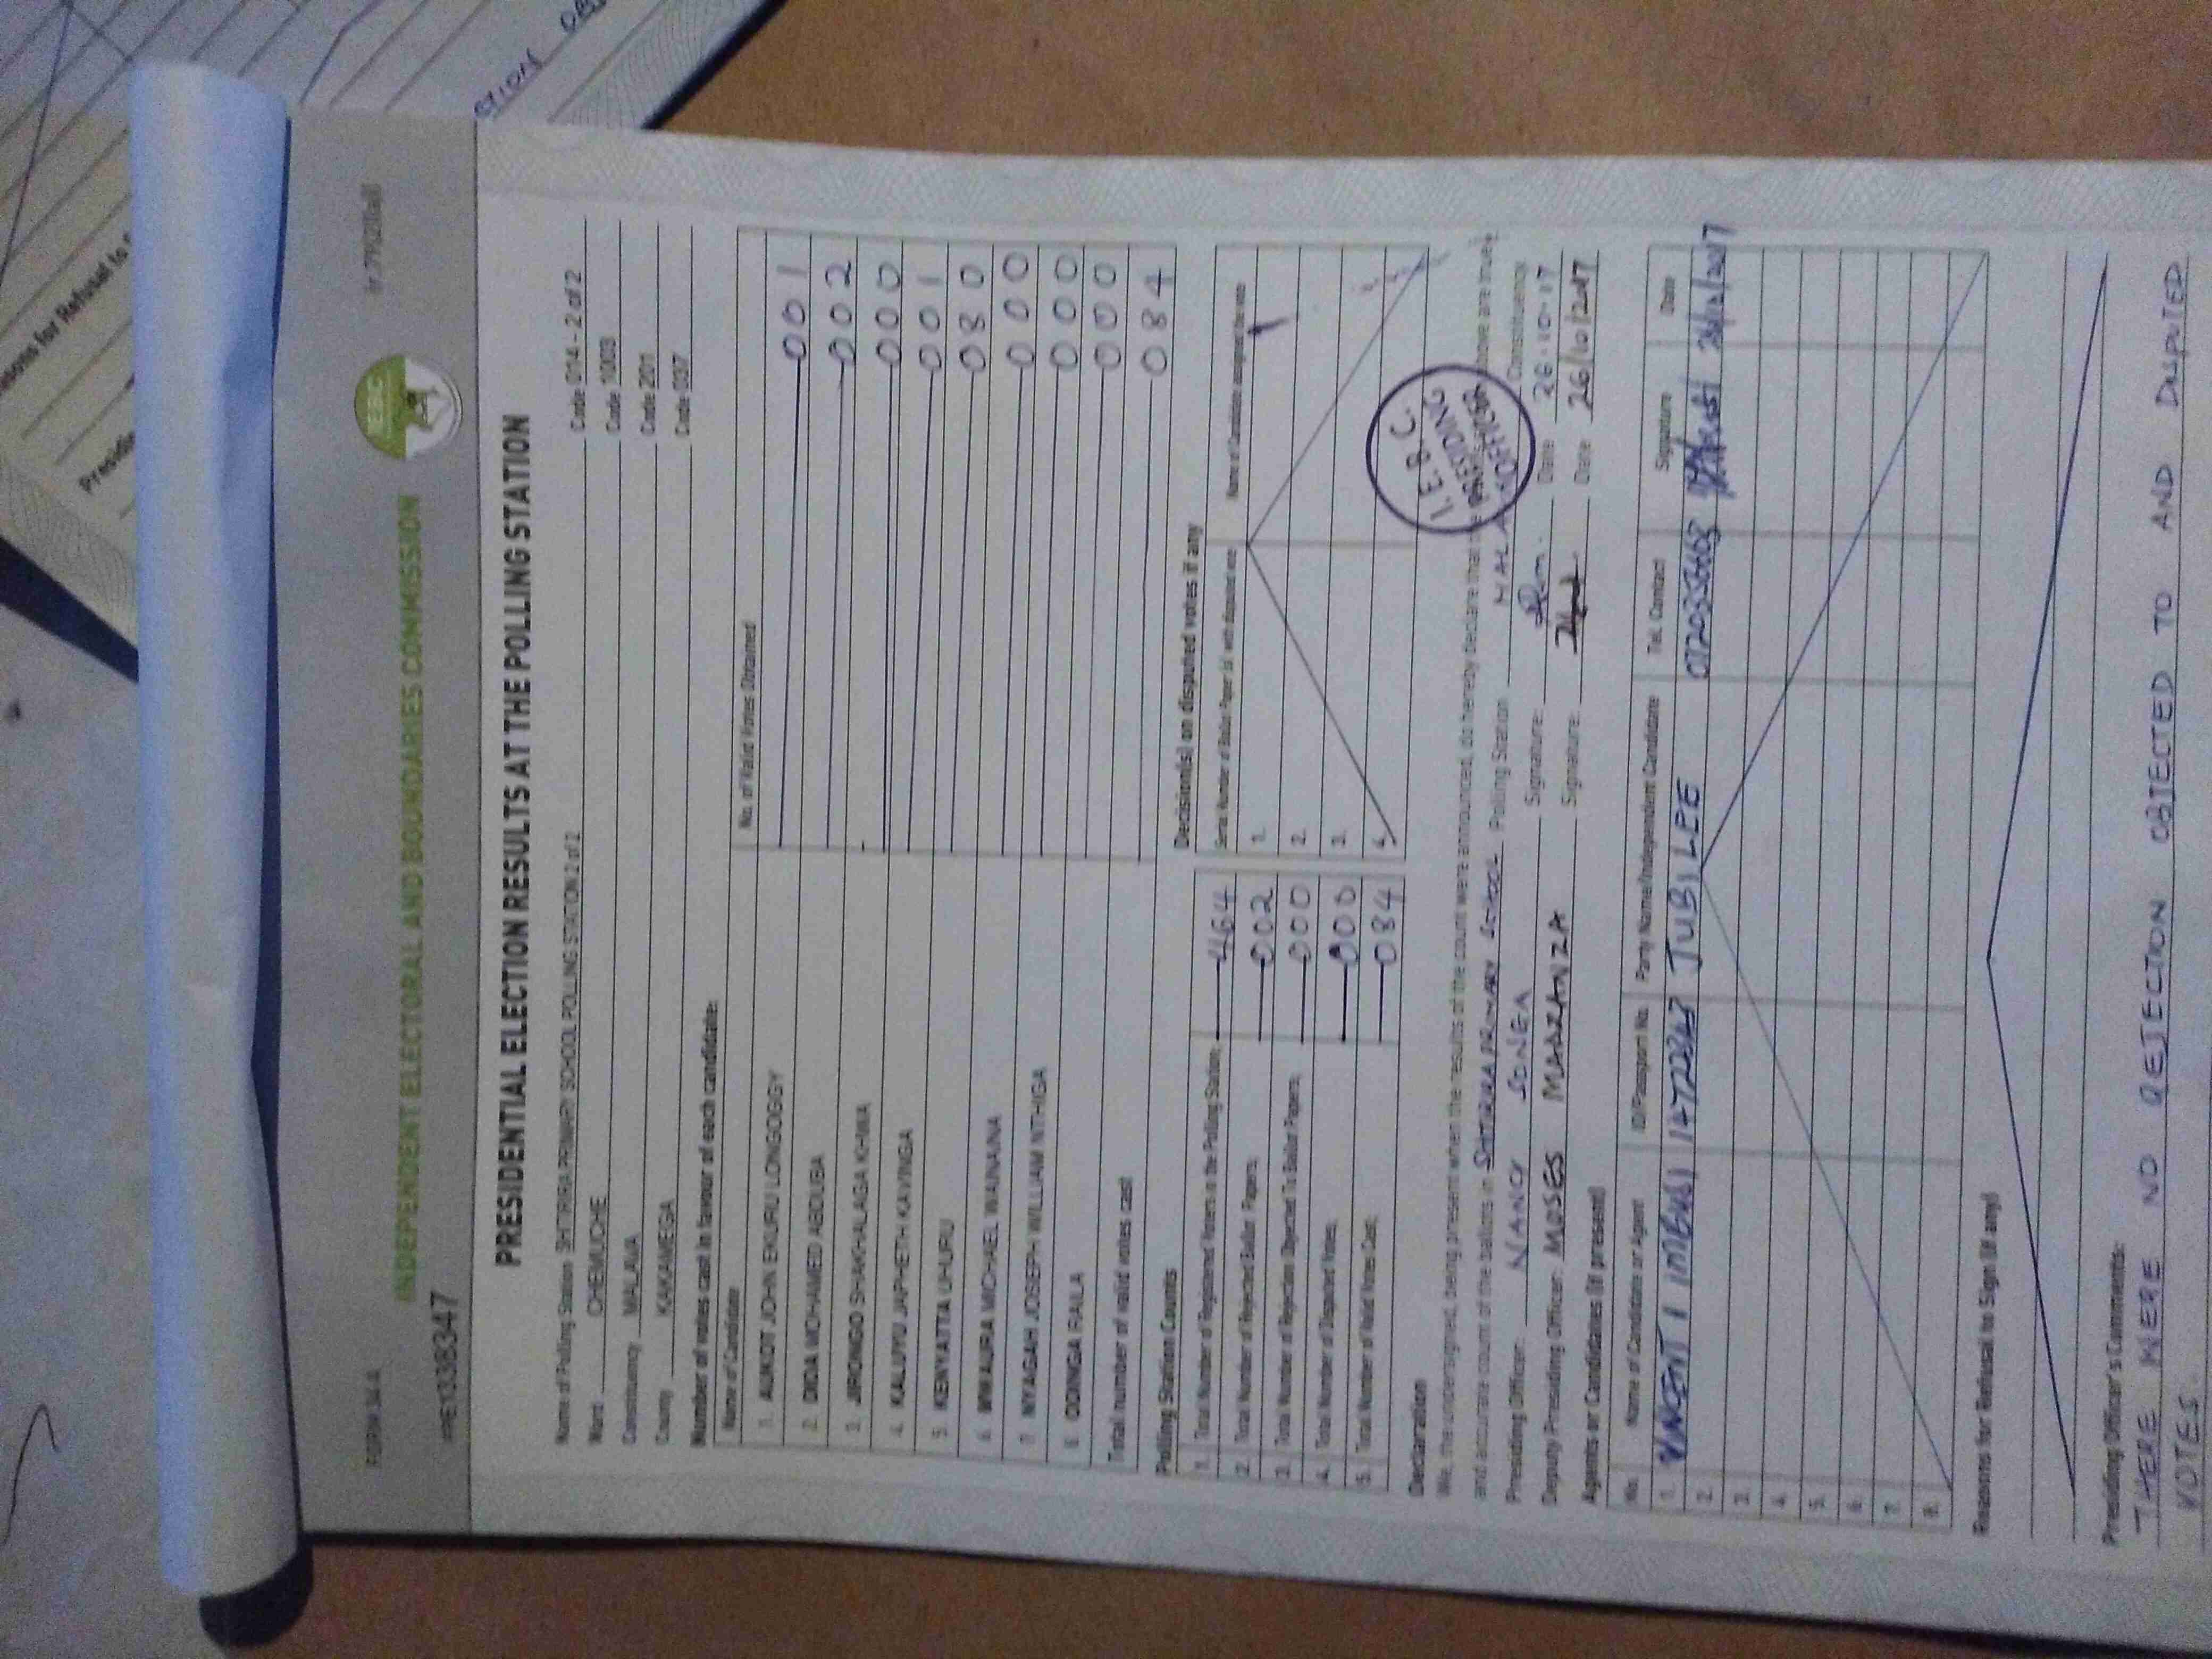 Reasons for Refusal to
Presidi
CTION
FORM 34 A
INDEPENDENT ELECTORAL AND BOUNDARIES COMMISSION
IEBC
PRESIDENTIAL ELECTION RESULTS AT THE POLLING STATION
Name of Polling Station SHITIRIRA PRIMARY SCHOOL POLLING STATION 2 of 2 Code 014 - 2 of 2
Ward CHEMUCHE Code 1003
Constituency MALAVA Code 201
County KAKAMEGA Code 037
Number of votes cast in favour of each candidate:
Name of Candidate No. of Valid Votes Obtained
1. AUKOT JOHN EKURU LONGOGGY 001
2. DIDA MOHAMED ABDUBA 002
3. JIRONGO SHAKHALAGA KHWA 000
4. KALUYU JAPHETH KAVINGA 001
5. KENYATTA UHURU 080
6. MWAURA MICHAEL WAINAINA 000
7. NYAGAH JOSEPH WILLIAM NTHIGA 000
8. ODINGA RAILA 000
Total number of valid votes cast 084
Polling Station Counts
1. Total Number of Registered Voters in the Polling Station: 464
2. Total Number of Rejected Ballot Papers: 002
3. Total Number of Rejection Objected To Ballot Papers: 000
4. Total Number of Disputed Votes: 000
5. Total Number of Valid Votes Cast: 084
Decision(s) on disputed votes if any
Serial Number of Ballot Paper (s) with disputed vote Name of Candidate assigned the vote
1.
2.
3.
4.
Declaration
We, the undersigned, being present when the results of the count were announced, do hereby declare that the above are true
and accurate count of the ballots in SHITIRIRA PRIMARY SCHOOL Polling Station MALAVA Constituency
I.E.B.C. PRESIDING OFFICER
Presiding Officer: NANCY SONGA Signature: Date 26-10-17
Deputy Presiding Officer: MOSES MADZANZA Signature: Date 26/10/2017
Agents or Candidates (if present)
No. Name of Candidate or Agent ID/Passport No. Party Name/Independent Candidate Tel. Contact Signature Date
1. VINCENT I IMBUSI JUBILEE
2.
3.
4.
5.
6.
7.
8.
Reasons for Refusal to Sign (if any)
Presiding Officer's Comments:
THERE WERE NO REJECTION OBJECTED TO AND DISPUTED
VOTES.